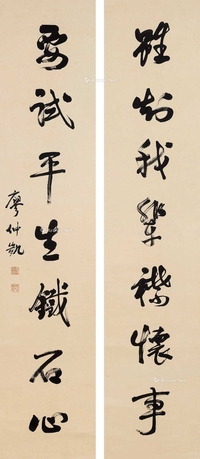 雖知我輩襟懷事
要試平生鐵石心
廖仲凱